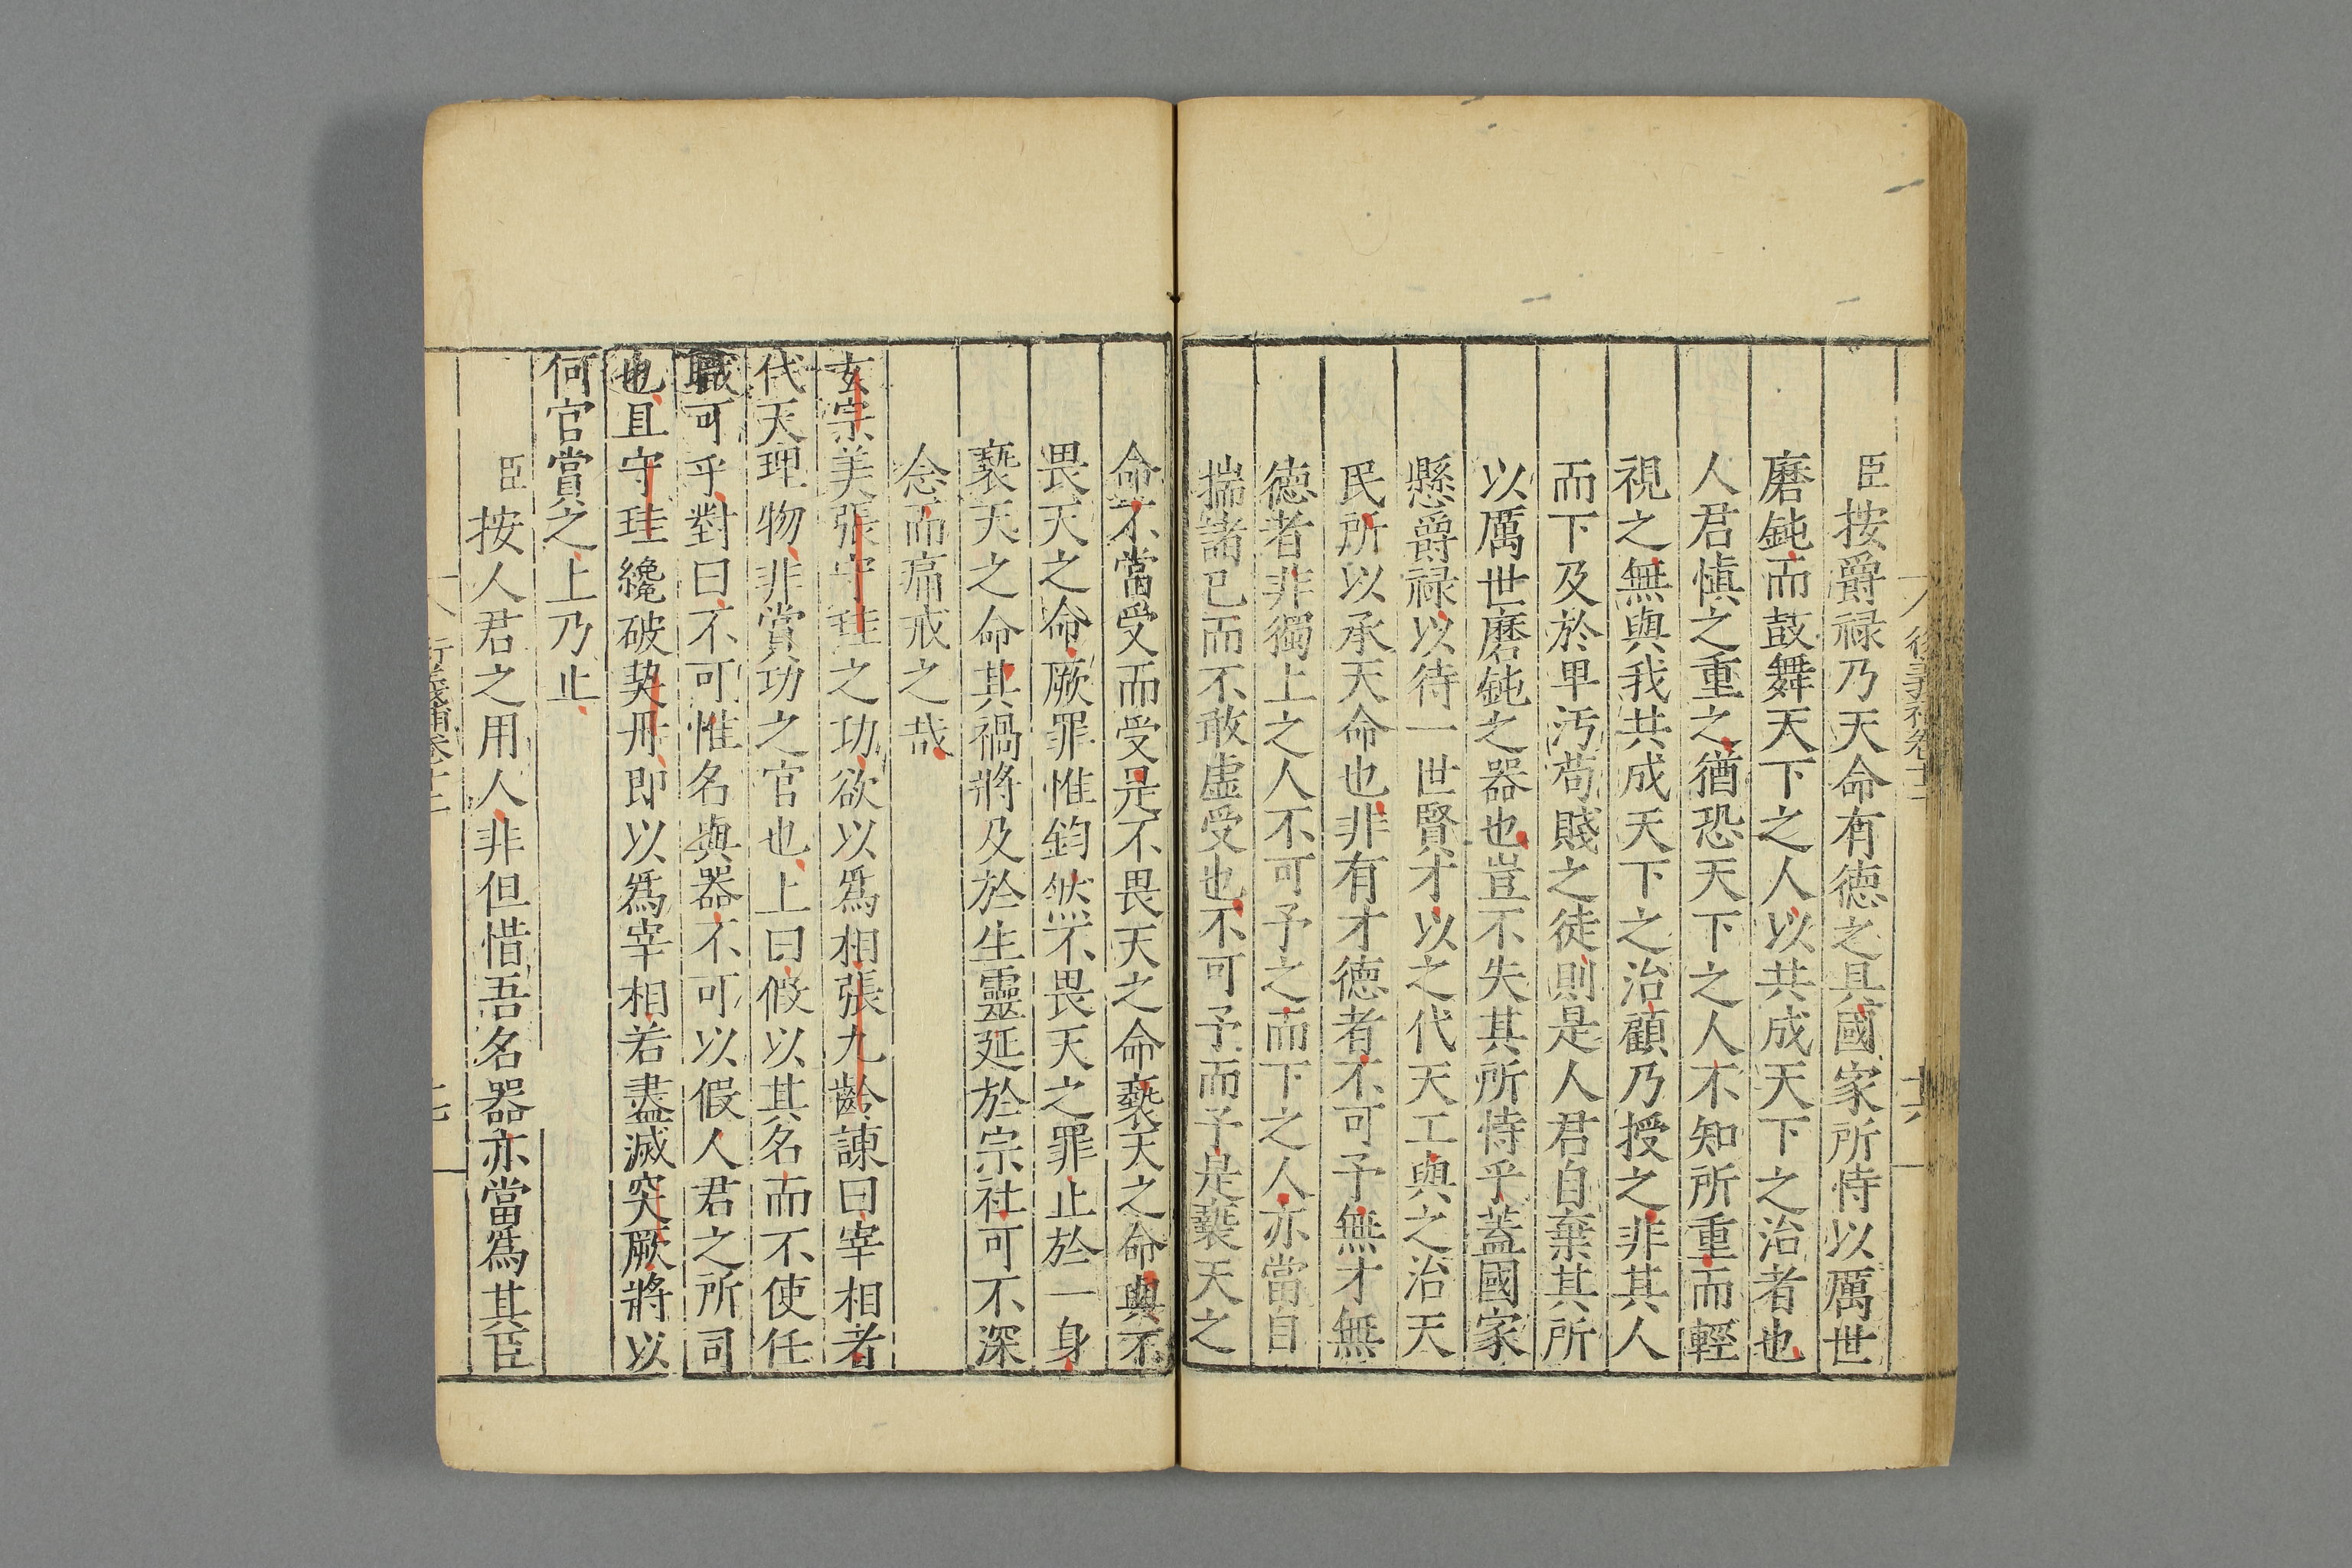 衍義補卷十二 十六
臣按爵禄乃天命有德之具國家所恃以厲世
磨鈍而鼓舞天下之人以共成天下之治者也
人君慎之重之猶恐天下之人不知所重而輕
視之無與我共成天下之治顧乃授之非其人
而下及於早汚苟賤之徒則是人君自棄其所
以厲世磨鈍之器也豈不失其所恃乎蓋國家
懸爵禄以待一世賢才以之代天工與之治天
民所以承天命也非有才德者不可予無才無
德者非獨上之人不可予之而下之人亦當自
揣諸已而不敢虛受也不可予而予是褻天之
命不當受而受是不畏天之命褻天之命與不
畏天之命厥罪惟鈞然不畏天之罪止於一身
褻天之命其禍將及於生靈延於宗社可不深
念而痛戒之哉
玄宗美張守珪之功欲以爲相張九齡諫曰宰相者
代天理物非賞功之官也上曰假以其名而不使任
職可乎對曰不可惟名與器不可以假人君之所司
也且守珪纔破契丹即以爲宰相若盡滅突厥將以
何官賞之上乃止
臣按人君之用人非但惜吾名器亦當爲其臣
衍義補卷十二 十七